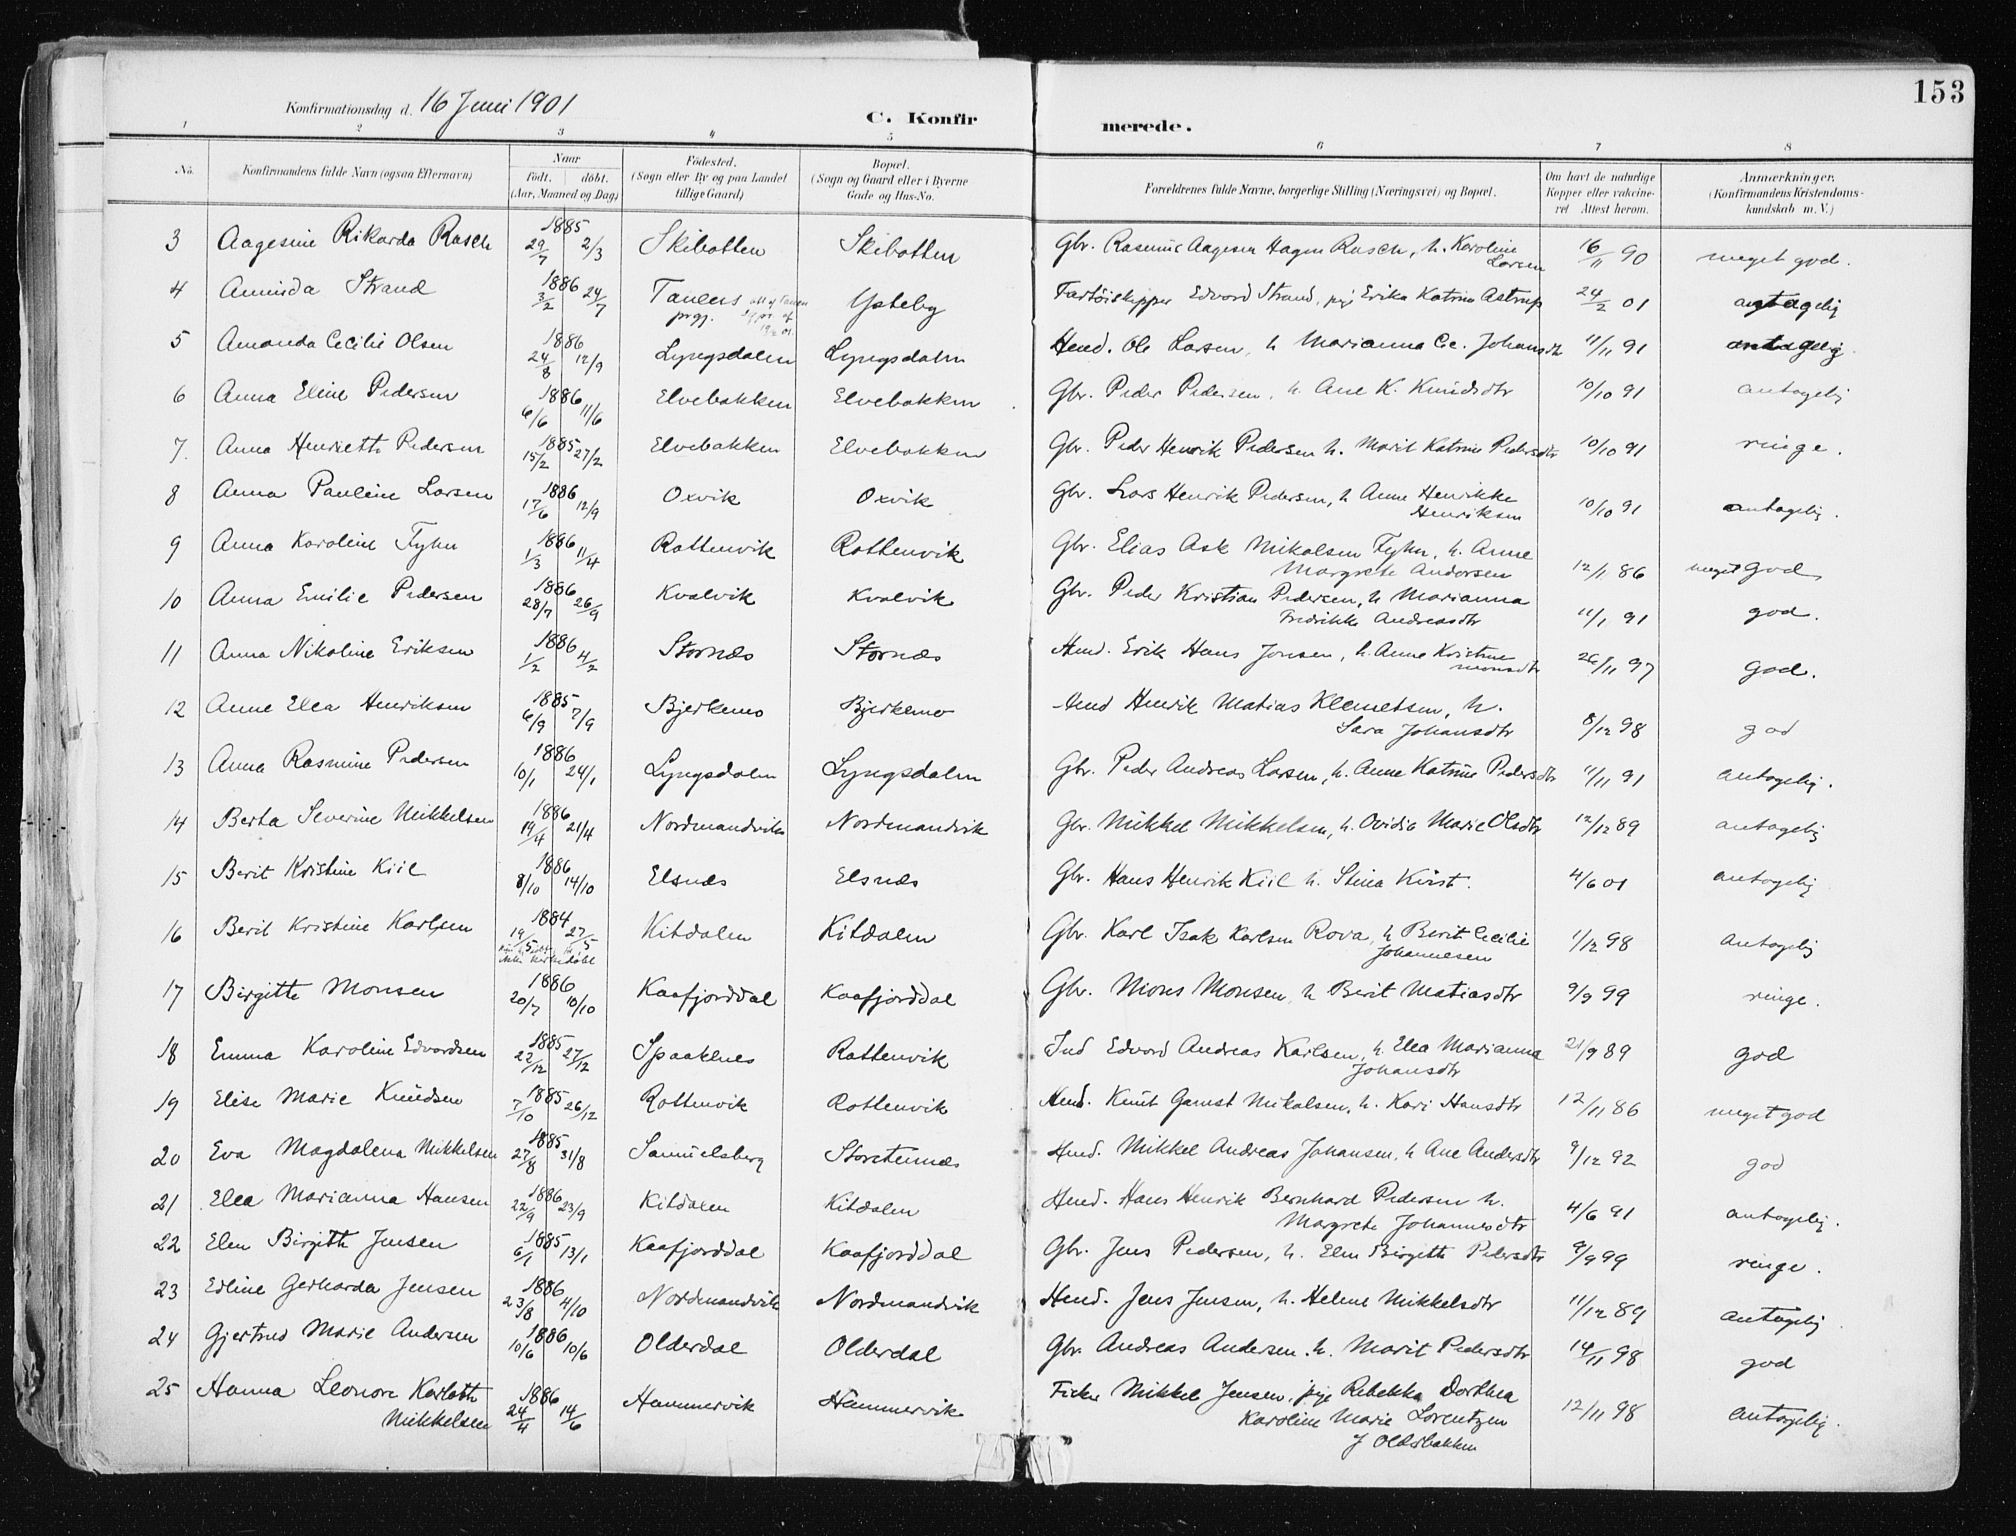 153
Konfirmationsdag d. 16 Juni 1901
C. Konfir merede.
1 2 3 4 5 6 7 8
No. Konfirmandens fulde Navn (ogsaa Efternavn) Naar født. døbt. (Aar, Maaned og Dag) Fødested. (Sogn eller By og paa Landet tillige Gaard) Bopæl. (Sogn og Gaard eller i Byerne Gade og Hus-No. Forældrenes fulde Navne, borgerlige Stilling (Næringsvei) og Bopæl. Om havt de naturlige Kopper eller vakcineret Attest herom. Anmærkninger. (Konfirmandens Kristendomskundskab m. V.)
3 Aagesine Rikarda Rasch 1885 29/7 2/3 Skibotten Skibotten Gbr. Rasmus Aagesen Hagen Rasch, h. Karoline Larsen 16/11 90 meget god.
4 Annida Strand 1886 3/2 24/7 Tanens prgj. Ysteby Fartøiskipper Edvard Strand, pige Erika Katrine Astrup 24/2 01 antagelig
5 Amanda Cecilie Olsen 1886 24/8 12/9 Lyngsdalen Lyngsdalen Hmd. Ole Larsen, h. Marianna Ce. Johansdtr 11/11 91 antagelig.
6 Anna Eline Pedersen 1886 6/6 11/6 Elvebakken Elvebakken Gbr. Peder Pedersen, h. Ane K. Knudsdtr 10/10 91 antagelig
7. Anna Henriette Pedersen 1885 15/2 27/2 Elvebakken Elvebakken Gbr. Peder Henrik Pedersen h. Marit Katrine Pedersdtr 10/10 91 ringe.
8 Anna Pauline Larsen 1886 17/6 12/9 Oxvik Oxvik Gbr. Lars Henrik Pedersen, h. Anne Henrikke Henriksen 10/10 91 antagelig.
9 Anna Karoline Fyhn 1886 1/3 11/4 Rottenvik Rottenvik Gbr. Elias Ask Mikalsen Fyhn, h. Anne Margrete Andersen 12/1 86 meget god
10 Anna Emilie Pedersen 1886 28/7 26/9 Kvalvik Kvalvik Gbr. Peder Kristian Pedersen, h. Marianna Fredrikke Andreasdtr 11/1 91 god.
11 Anna Nikoline Eriksen 1886 1/2 4/2 Stornæs Stornæs Hmd. Erik Hans Jonsen, h. Anne Kristine Monsdtr 26/11 97 god.
12 Anne Elea Henriksen 1885 6/9 7/9 Bjerkemo Bjerkemo Hmd Henrik Matias Klemetsen, h. Sara Johansdtr 8/12 98 god
13 Anna Rasmine Pedersen 1886 10/1 24/1 Lyngsdalen Lyngsdalen Gbr. Peder Andreas Larsen, h. Anne Katrine Pedersdtr 11/11 91 antagelig.
14 Berta Severine Mikkelsen 1886 19/4 21/4 Nordmandvik Nordmandvik Gbr. Mikkel Mikkelsen, h. Ovidia Marie Olsdtr 12/12 89 antagelig
15 Berit Kristine Kiil 1886 8/10 14/10 Elsnæs Elsnæs Gbr. Hans Henrik Kiil h. Stina Kvist. 4/6 01 antagelig
16 Berit Kristine Karlsen 1884 19/5 27/5 Kitdalen Kitdalen Gbr. Karl Isak Karlsen Rova, h. Berit Cecilie Johannesen 1/12 98 antagelig
17 Birgitte Monsen 1886 20/7 10/10 Kaafjorddal Kaafjorddal Gbr. Mons Monsen, h Berit Matiasdtr 9/9 99 ringe.
18 Emma Karoline Edvardsen 1885 22/12 27/12 Spaaknes Rottenvik Ind Edvard Andreas Karlsen, h. Elea Marianna Johansdtr 21/9 89 god
19 Elise Marie Knudsen 1885 7/10 26/12 Rottenvik Rottenvik Hmd. Knut Gamst Mikalsen, h. Kari Hansdtr 12/11 86 meget god
20 Eva Magdalena Mikkelsen 1885 27/8 31/8 Samuelsberg Storstennæs Hmd. Mikkel Andreas Johansen, h Ane Andersdtr 9/12 92 god
21 Elea Marianna Hansen 1886 22/9 23/9 Kitdalen Kitdalen Hmd. Hans Henrik Bernhard Pedersen h. Margrete Johannesdtr 4/6 91 antagelig.
22 Elen Birgitte Jensen 1885 6/1 13/1 Kaafjorddal Kaafjorddal Gbr. Jens Pedersen, h. Elen Birgitte Pedersdtr 9/9 99 ringe.
23 Edline Gerharda Jensen 1886 23/8 4/10 Nordmandvik Nordmandvik Hmd. Jens Jensen, h. Helene Mikkelsdtr 11/12 89 antagelig
24 Gjertrud Marie Andersen 1886 10/6 10/6 Olderdal Olderdal Gbr. Andreas Andersen. h. Marit Pedersdtr 14/11 98 god
25 Hanna Leonore Karlotte Mikkelsen 1886 24/4 14/6 Hammervik Hammervik Fisker Mikkel Jensen, pige Rebekka Dorthea Karoline Marie Lorentzen J Oldersbakken 12/11 98 antagelig.